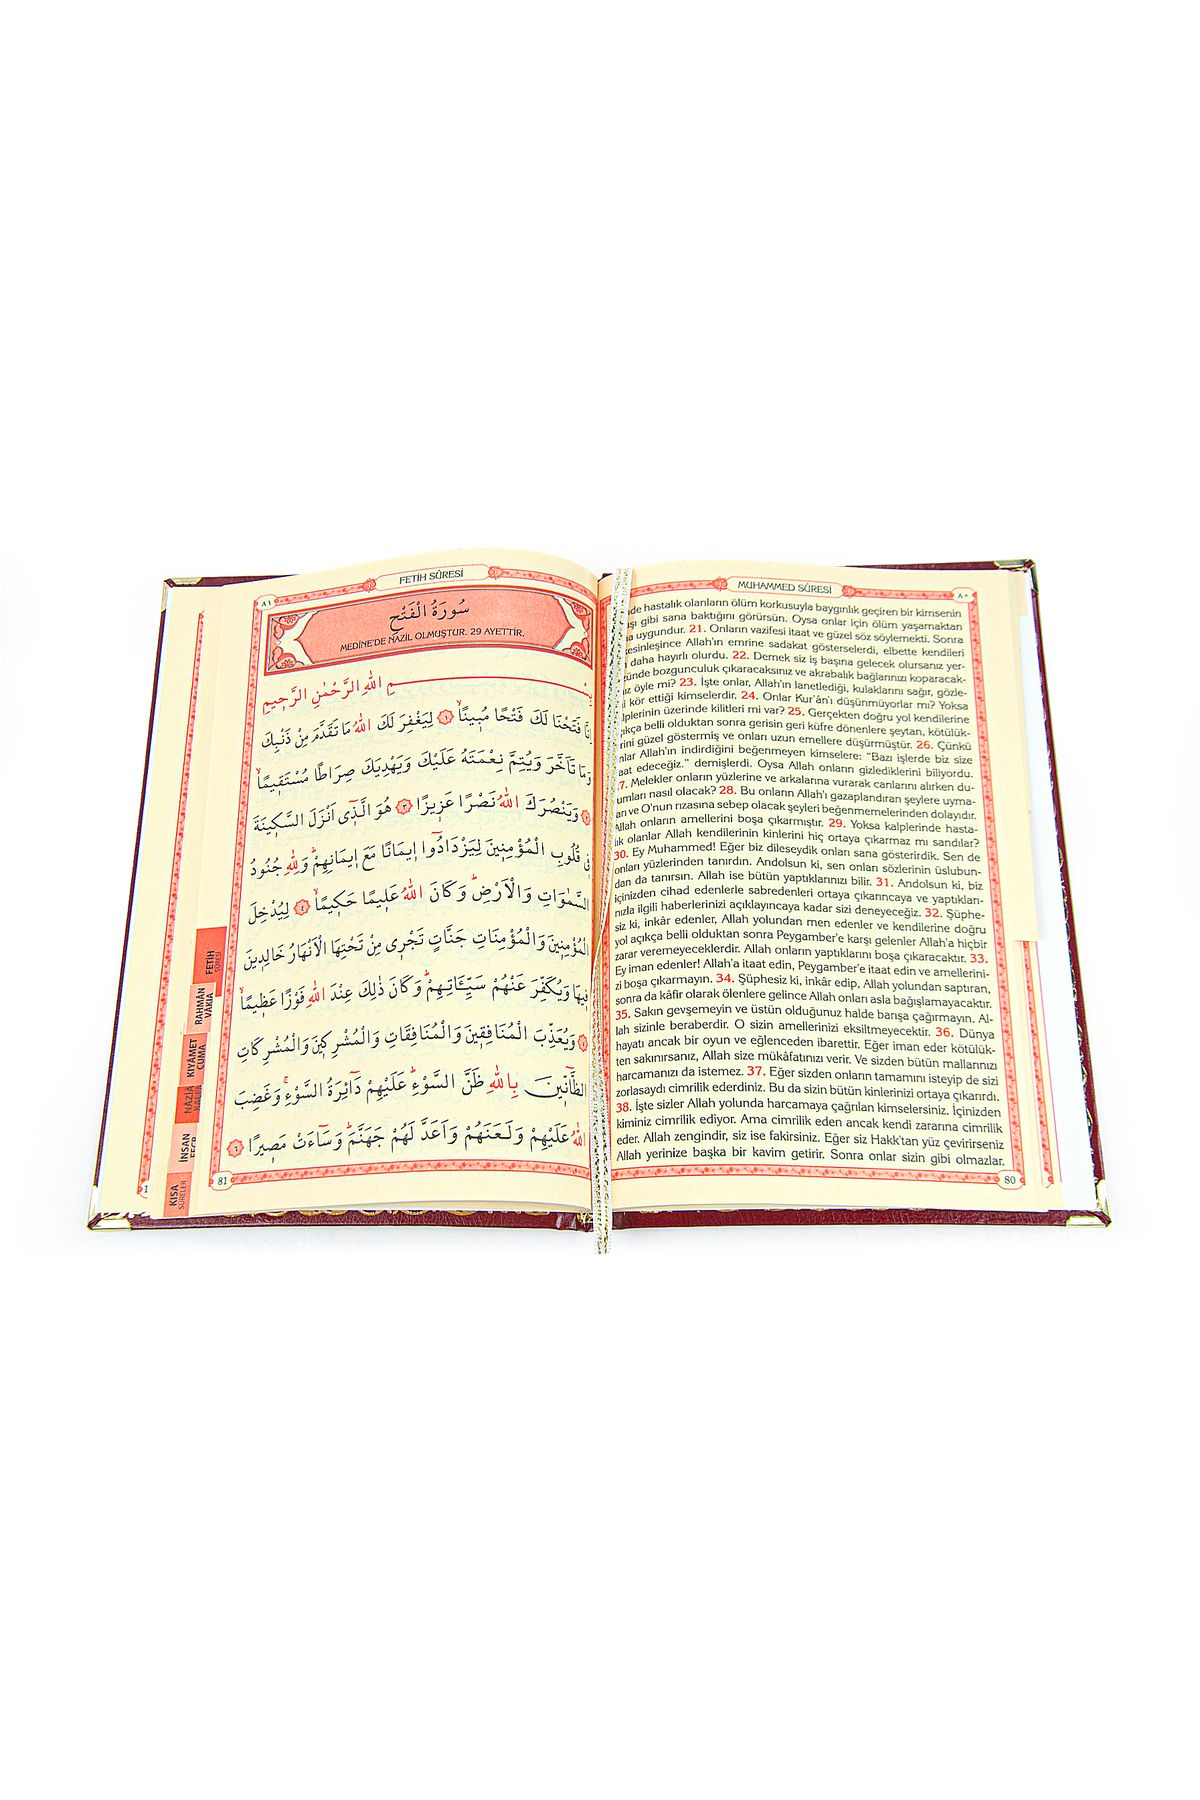 FETİH SÛRESİ
٨١
سُورَةُ الْفَتْحِ
MEDİNE'DE NAZİL OLMUŞTUR. 29 AYETTİR.
بِسْمِ اللهِ الرَّحْمٰنِ الرَّح۪يمِ
اِنَّا فَتَحْنَا لَكَ فَتْحًا مُب۪ينًاۙ ﴿١﴾ لِيَغْفِرَ لَكَ اللهُ مَا تَقَدَّمَ مِنْ ذَنْبِكَ
وَمَا تَاَخَّرَ وَيُتِمَّ نِعْمَتَهُ عَلَيْكَ وَيَهْدِيَكَ صِرَاطًا مُسْتَق۪يمًاۙ
﴿٢﴾ وَيَنْصُرَكَ اللهُ نَصْرًا عَز۪يزًا ﴿٣﴾ هُوَ الَّذ۪ٓي اَنْزَلَ السَّك۪ينَةَ
ف۪ي قُلُوبِ الْمُؤْمِن۪ينَ لِيَزْدَادُٓوا ا۪يمَانًا مَعَ ا۪يمَانِهِمْۜ وَلِلّٰهِ جُنُودُ
السَّمٰوَاتِ وَالْاَرْضِۜ وَكَانَ اللهُ عَل۪يمًا حَك۪يمًاۙ ﴿٤﴾ لِيُدْخِلَ
الْمُؤْمِن۪ينَ وَالْمُؤْمِنَاتِ جَنَّاتٍ تَجْر۪ي مِنْ تَحْتِهَا الْاَنْهَارُ خَالِد۪ينَ
ف۪يهَا وَيُكَفِّرَ عَنْهُمْ سَيِّـَٔاتِهِمْۜ وَكَانَ ذٰلِكَ عِنْدَ اللهِ فَوْزًا عَظ۪يمًاۙ
﴿٥﴾ وَيُعَذِّبَ الْمُنَافِق۪ينَ وَالْمُنَافِقَاتِ وَالْمُشْرِك۪ينَ وَالْمُشْرِكَاتِ
الظَّٓانّ۪ينَ بِاللهِ ظَنَّ السَّوْءِۜ عَلَيْهِمْ دَٓائِرَةُ السَّوْءِۚ وَغَضِبَ
اللهُ عَلَيْهِمْ وَلَعَنَهُمْ وَاَعَدَّ لَهُمْ جَهَنَّمَۜ وَسَٓاءَتْ مَص۪يرًا ﴿٦﴾
81
FETİH
SÛRESİ
RAHMÂN
VÂKIA
KIYÂMET
CUMA
İNSAN
KISA
SÛRELER
MUHAMMED SÛRESİ
٨٠
de hastalık olanların ölüm korkusuyla baygınlık geçiren bir kimsenin
gibi sana baktığını görürsün. Oysa onlar için ölüm yaşamaktan
uygundur. 21. Onların vazifesi itaat ve güzel söz söylemekti. Sonra
kesinleşince Allah'ın emrine sadakat gösterselerdi, elbette kendileri
daha hayırlı olurdu. 22. Demek siz iş başına gelecek olursanız yer-
ünde bozgunculuk çıkaracaksınız ve akrabalık bağlarınızı koparacak-
öyle mi? 23. İşte onlar, Allah'ın lanetlediği, kulaklarını sağır, gözle-
kör ettiği kimselerdir. 24. Onlar Kur'ân'ı düşünmüyorlar mı? Yoksa
lplerinin üzerinde kilitleri mi var? 25. Gerçekten doğru yol kendilerine
ıkça belli olduktan sonra gerisin geri küfre dönenlere şeytan, kötülük-
rini güzel göstermiş ve onları uzun emellere düşürmüştür. 26. Çünkü
nlar Allah'ın indirdiğini beğenmeyen kimselere: "Bazı işlerde biz size
aat edeceğiz." demişlerdi. Oysa Allah onların gizlediklerini biliyordu.
7. Melekler onların yüzlerine ve arkalarına vurarak canlarını alırken du-
umları nasıl olacak? 28. Bu onların Allah'ı gazaplandıran şeylere uyma-
arı ve O'nun rızasına sebep olacak şeyleri beğenmemelerinden dolayıdır.
Allah onların amellerini boşa çıkarmıştır. 29. Yoksa kalplerinde hasta-
lık olanlar Allah kendilerinin kinlerini hiç ortaya çıkarmaz mı sandılar?
30. Ey Muhammed! Eğer biz dileseydik onları sana gösterirdik. Sen de
onları yüzlerinden tanırdın. Andolsun ki, sen onları sözlerinin üslubun-
dan da tanırsın. Allah ise bütün yaptıklarınızı bilir. 31. Andolsun ki, biz
içinizden cihad edenlerle sabredenleri ortaya çıkarıncaya ve yaptıkları-
nızla ilgili haberlerinizi açıklayıncaya kadar sizi deneyeceğiz. 32. Şüphe-
siz ki, inkâr edenler, Allah yolundan men edenler ve kendilerine doğru
yol açıkça belli olduktan sonra Peygamber'e karşı gelenler Allah'a hiçbir
zarar veremeyeceklerdir. Allah onların yaptıklarını boşa çıkaracaktır. 33.
Ey iman edenler! Allah'a itaat edin, Peygamber'e itaat edin ve amellerini-
zi boşa çıkarmayın. 34. Şüphesiz ki, inkâr edip, Allah yolundan saptıran,
sonra da kâfir olarak ölenlere gelince Allah onları asla bağışlamayacaktır.
35. Sakın gevşemeyin ve üstün olduğunuz halde barışa çağırmayın. Al-
lah sizinle beraberdir. O sizin amellerinizi eksiltmeyecektir. 36. Dünya
hayatı ancak bir oyun ve eğlenceden ibarettir. Eğer iman eder kötülük-
ten sakınırsanız, Allah size mükâfatınızı verir. Ve sizden bütün mallarınızı
harcamanızı da istemez. 37. Eğer sizden onların tamamını isteyip de sizi
zorlasaydı cimrilik ederdiniz. Bu da sizin bütün kinlerinizi ortaya çıkarırdı.
38. İşte sizler Allah yolunda harcamaya çağrılan kimselersiniz. İçinizden
kiminiz cimrilik ediyor. Ama cimrilik eden ancak kendi zararına cimrilik
eder. Allah zengindir, siz ise fakirsiniz. Eğer siz Hakk'tan yüz çevirirseniz
Allah yerinize başka bir kavim getirir. Sonra onlar sizin gibi olmazlar.
80